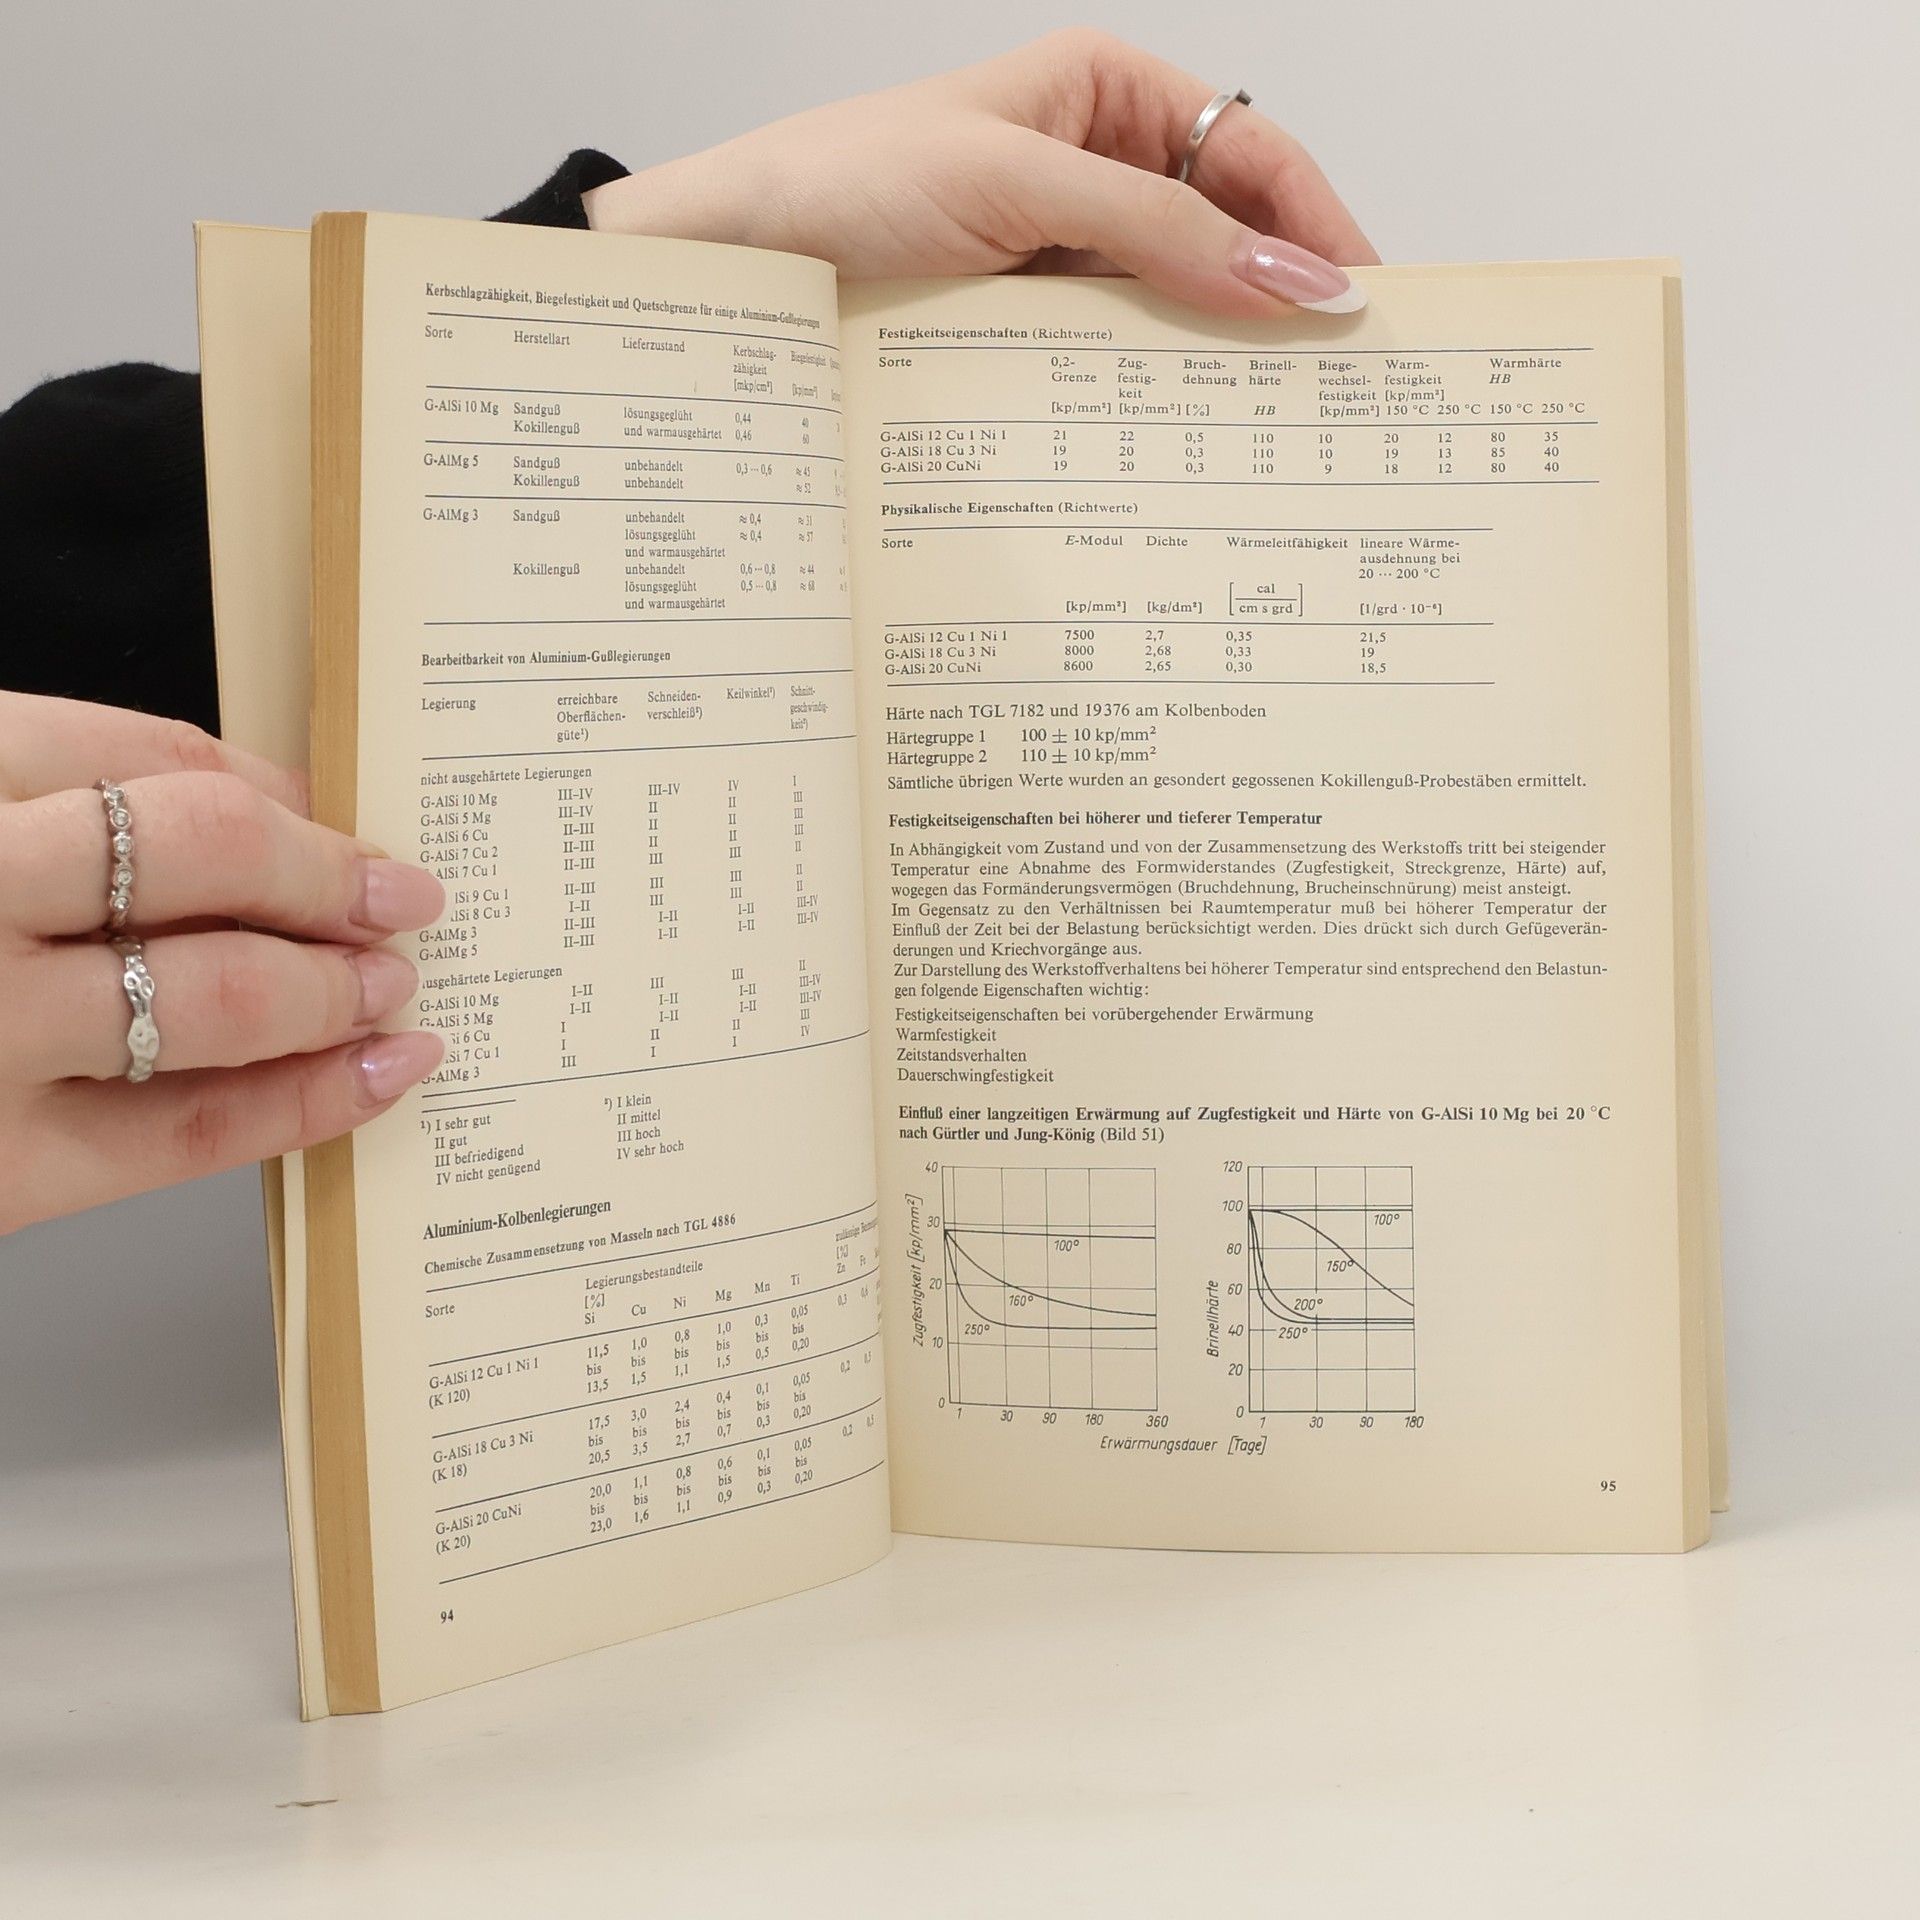 Kerbschlagzähigkeit, Biegefestigkeit und Quetschgrenze für einige Aluminium-Gußlegierungen
Sorte Herstellart Lieferzustand Kerbschlag- Biegefestigkeit
zähigkeit
[mkp/cm²] [kp/mm²]
G-AlSi 10 Mg Sandguß lösungsgeglüht 0,44 40
Kokillenguß und warmausgehärtet 0,46 60
G-AlMg 5 Sandguß unbehandelt 0,3 ··· 0,6 ≈ 45
Kokillenguß unbehandelt ≈ 52
G-AlMg 3 Sandguß unbehandelt ≈ 0,4 ≈ 31
lösungsgeglüht ≈ 0,4 ≈ 57
und warmausgehärtet
Kokillenguß unbehandelt 0,6 ··· 0,8 ≈ 44
lösungsgeglüht 0,5 ··· 0,8 ≈ 68
und warmausgehärtet
Bearbeitbarkeit von Aluminium-Gußlegierungen
Legierung erreichbare Schneiden- Keilwinkel²) Schnitt-
Oberflächen- verschleiß²) geschwindig-
güte¹) keit²)
nicht ausgehärtete Legierungen
G-AlSi 10 Mg III–IV III–IV IV I
G-AlSi 5 Mg III–IV II II III
G-AlSi 6 Cu II–III II II III
G-AlSi 7 Cu 2 II–III II II III
AlSi 7 Cu 1 II–III III III II
lSi 9 Cu 1 II–III III III II
lSi 8 Cu 3 I–II III III II
G-AlMg 3 II–III I–II I–II III–IV
G-AlMg 5 II–III I–II I–II III–IV
usgehärtete Legierungen
G-AlSi 10 Mg I–II III III II
G-AlSi 5 Mg I–II I–II I–II III–IV
Si 6 Cu I I–II I–II III–IV
Si 7 Cu 1 I II II III
G-AlMg 3 III I I IV
¹) I sehr gut ²) I klein
II gut II mittel
III befriedigend III hoch
IV nicht genügend IV sehr hoch
Aluminium-Kolbenlegierungen
Chemische Zusammensetzung von Masseln nach TGL 4886
Sorte Legierungsbestandteile zulässige
[%] [%]
Si Cu Ni Mg Mn Ti Zn Fe
G-AlSi 12 Cu 1 Ni 1 11,5 1,0 0,8 1,0 0,3 0,05 0,3 0,6
(K 120) bis bis bis bis bis bis
13,5 1,5 1,1 1,5 0,5 0,20
G-AlSi 18 Cu 3 Ni 17,5 3,0 2,4 0,4 0,1 0,05 0,2 0,5
(K 18) bis bis bis bis bis bis
20,5 3,5 2,7 0,7 0,3 0,20
G-AlSi 20 CuNi 20,0 1,1 0,8 0,6 0,1 0,05 0,2 0,5
(K 20) bis bis bis bis bis bis
23,0 1,6 1,1 0,9 0,3 0,20
94
Festigkeitseigenschaften (Richtwerte)
Sorte 0,2- Zug- Bruch- Brinell- Biege- Warm- Warmhärte
Grenze festig- dehnung härte wechsel- festigkeit HB
keit festigkeit [kp/mm²]
[kp/mm²] [kp/mm²] [%] HB [kp/mm²] 150 °C 250 °C 150 °C 250 °C
G-AlSi 12 Cu 1 Ni 1 21 22 0,5 110 10 20 12 80 35
G-AlSi 18 Cu 3 Ni 19 20 0,3 110 10 19 13 85 40
G-AlSi 20 CuNi 19 20 0,3 110 9 18 12 80 40
Physikalische Eigenschaften (Richtwerte)
Sorte E-Modul Dichte Wärmeleitfähigkeit lineare Wärme-
ausdehnung bei
20 ··· 200 °C
[kp/mm²] [kg/dm³] [cal / cm s grd] [1/grd · 10⁻⁶]
G-AlSi 12 Cu 1 Ni 1 7500 2,7 0,35 21,5
G-AlSi 18 Cu 3 Ni 8000 2,68 0,33 19
G-AlSi 20 CuNi 8600 2,65 0,30 18,5
Härte nach TGL 7182 und 19376 am Kolbenboden
Härtegruppe 1 100 ± 10 kp/mm²
Härtegruppe 2 110 ± 10 kp/mm²
Sämtliche übrigen Werte wurden an gesondert gegossenen Kokillenguß-Probestäben ermittelt.
Festigkeitseigenschaften bei höherer und tieferer Temperatur
In Abhängigkeit vom Zustand und von der Zusammensetzung des Werkstoffs tritt bei steigender
Temperatur eine Abnahme des Formwiderstandes (Zugfestigkeit, Streckgrenze, Härte) auf,
wogegen das Formänderungsvermögen (Bruchdehnung, Brucheinschnürung) meist ansteigt.
Im Gegensatz zu den Verhältnissen bei Raumtemperatur muß bei höherer Temperatur der
Einfluß der Zeit bei der Belastung berücksichtigt werden. Dies drückt sich durch Gefügeverän-
derungen und Kriechvorgänge aus.
Zur Darstellung des Werkstoffverhaltens bei höherer Temperatur sind entsprechend den Belastun-
gen folgende Eigenschaften wichtig:
Festigkeitseigenschaften bei vorübergehender Erwärmung
Warmfestigkeit
Zeitstandsverhalten
Dauerschwingfestigkeit
Einfluß einer langzeitigen Erwärmung auf Zugfestigkeit und Härte von G-AlSi 10 Mg bei 20 °C
nach Gürtler und Jung-König (Bild 51)
Zugfestigkeit [kp/mm²]
40
30
20
10
0
100°
160°
250°
1 30 90 180 360
Brinellhärte
120
100
80
60
40
20
0
100°
150°
200°
250°
1 30 90 180
Erwärmungsdauer [Tage]
95